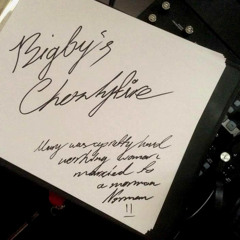 Bigby's
Mary was a pretty hard
working woman
married to
a mormon
Norman
!!